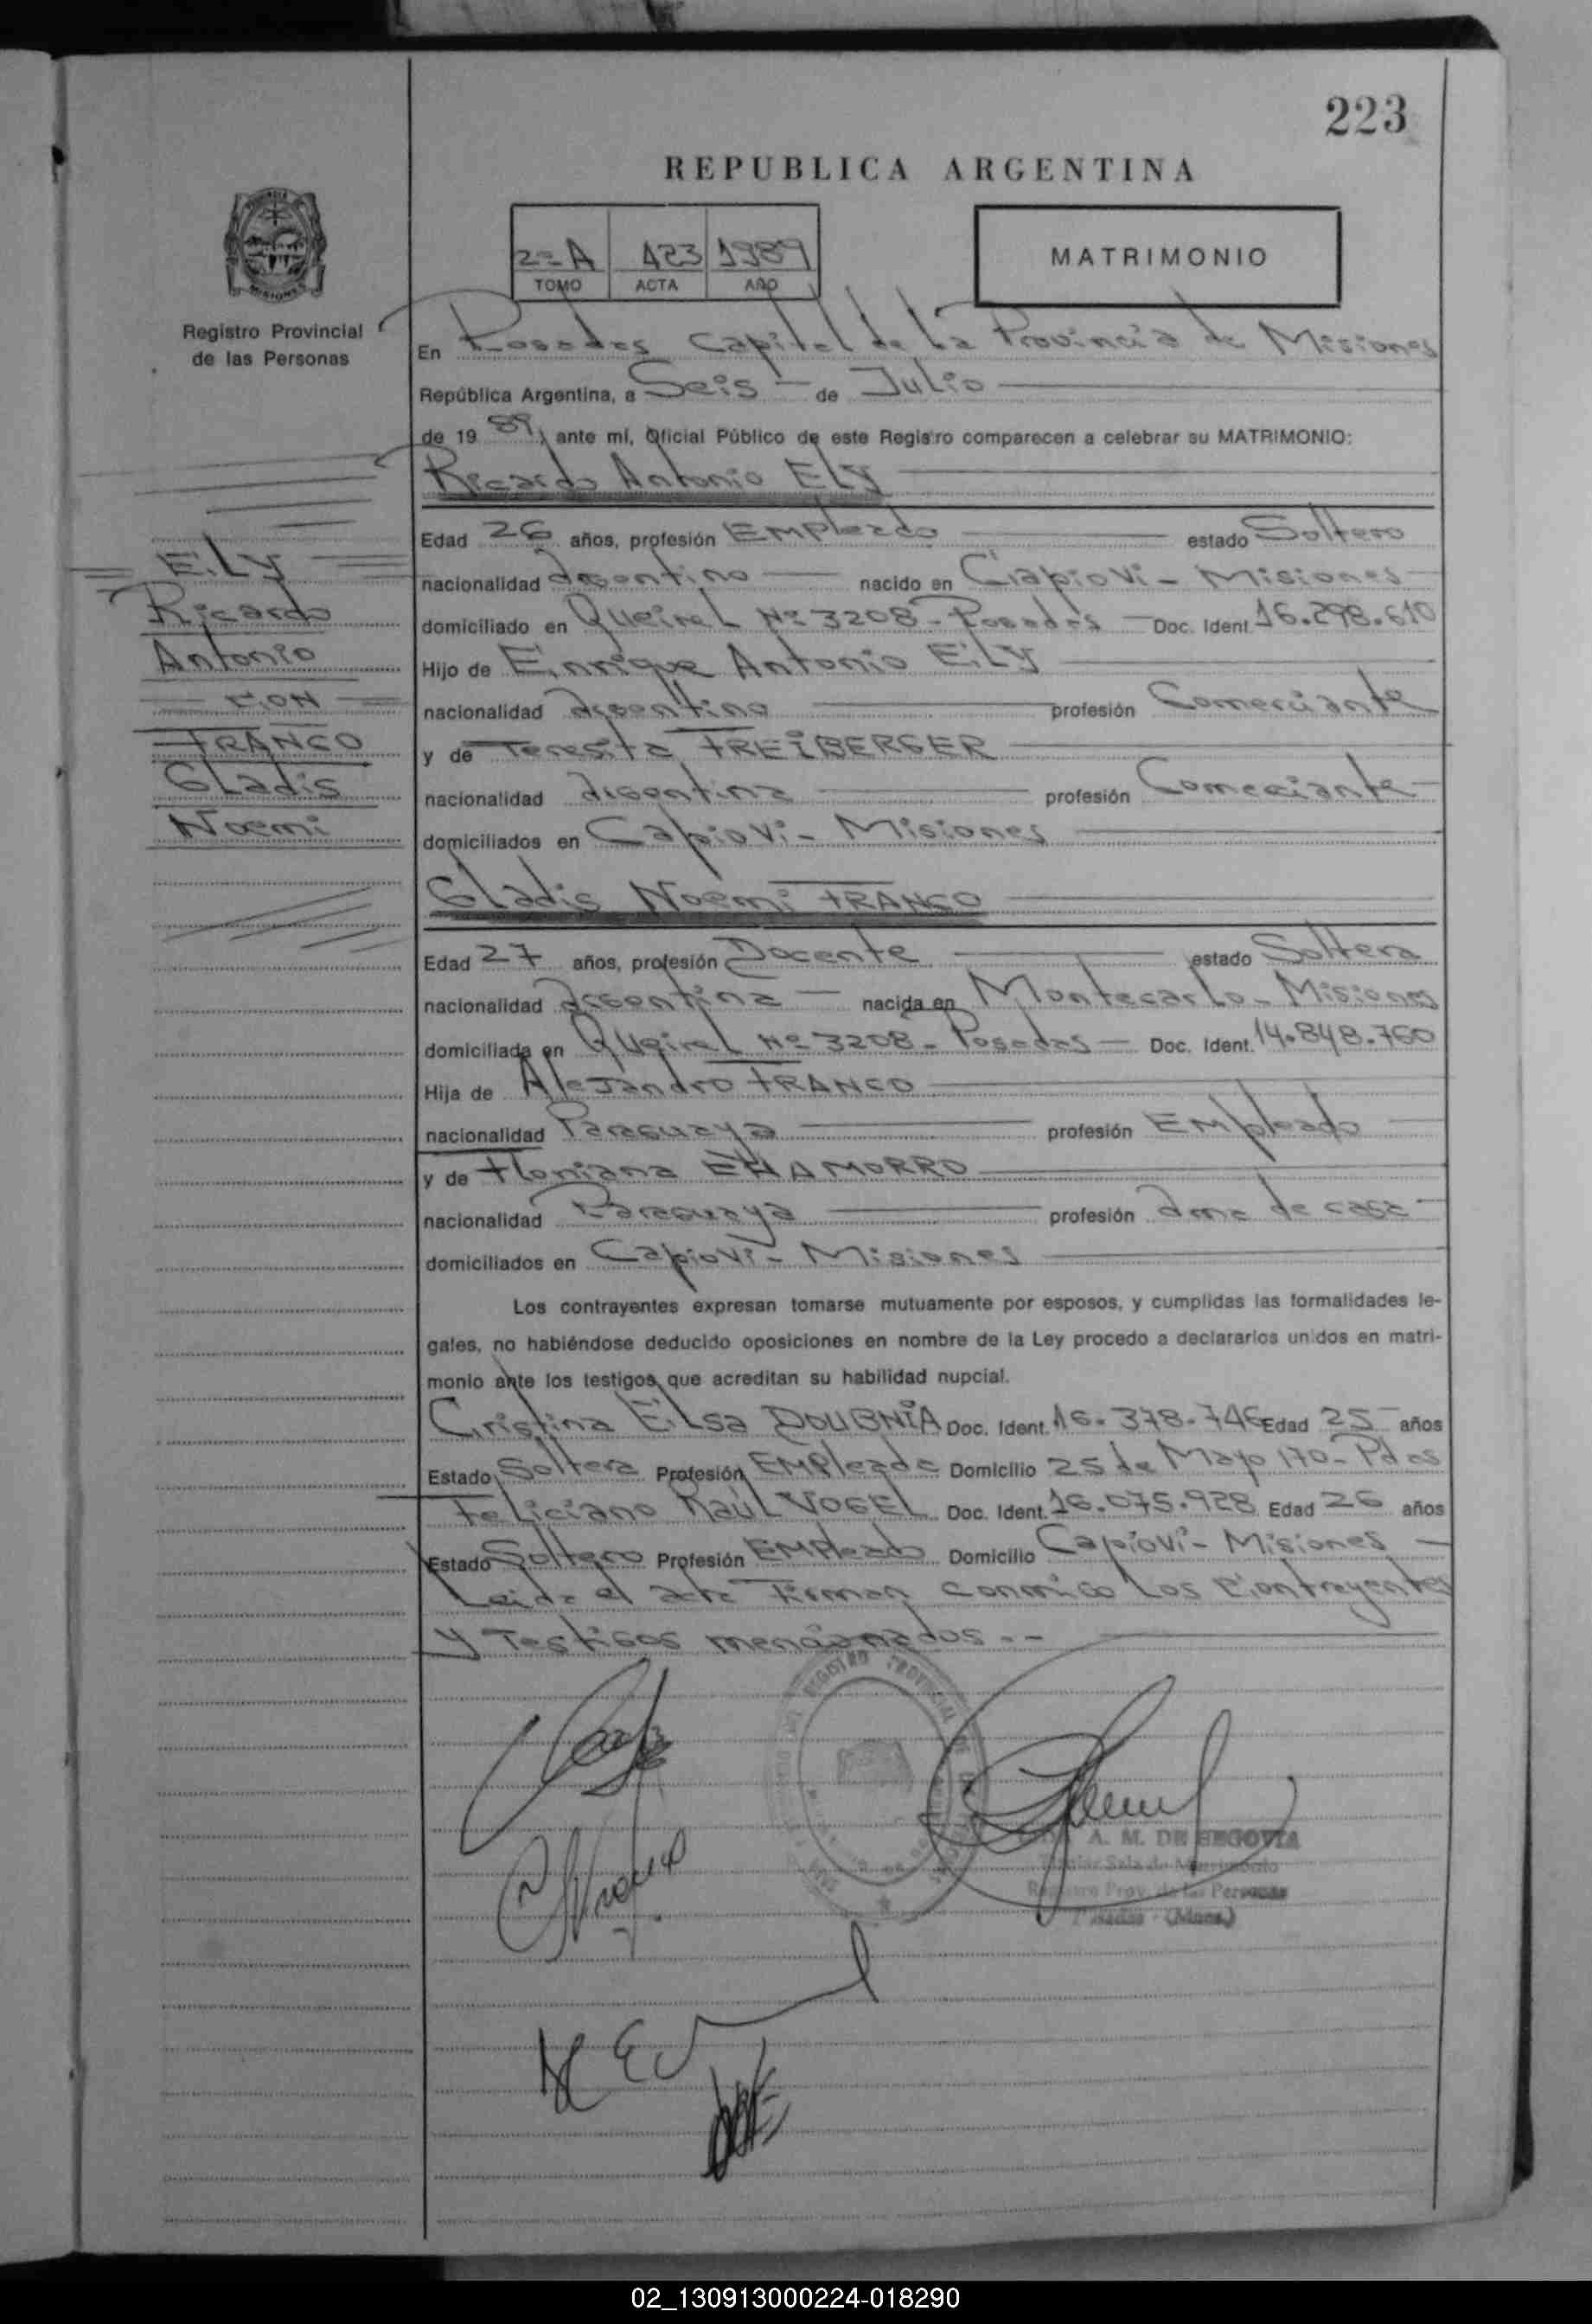 223
REPUBLICA ARGENTINA
2º A 423 1989
TOMO ACTA AÑO
MATRIMONIO
Registro Provincial
de las Personas
En Posadas Capital de la Provincia de Misiones
República Argentina, a Seis - de Julio
de 19 89, ante mí, Oficial Público de este Registro comparecen a celebrar su MATRIMONIO:
Ricardo Antonio ELY
Edad 26 años, profesión Empleado estado Soltero
nacionalidad argentino nacido en Capiovi - Misiones
domiciliado en Queirel Nº 3208 - Posadas - Doc. Ident. 16.298.610
Hijo de Enrique Antonio ELY
nacionalidad argentino profesión Comerciante
y de Teresita FREIBERGER
nacionalidad argentina profesión Comerciante
domiciliados en Capiovi - Misiones
Gladis Noemi FRANCO
Edad 27 años, profesión Docente estado Soltera
nacionalidad argentina nacida en Montecarlo - Misiones
domiciliada en Queirel Nº 3208 - Posadas - Doc. Ident. 14.848.760
Hija de Alejandro FRANCO
nacionalidad Paraguaya profesión Empleado
y de Floriana CHAMORRO
nacionalidad Paraguaya profesión ama de casa
domiciliados en Capiovi - Misiones
Los contrayentes expresan tomarse mutuamente por esposos, y cumplidas las formalidades le-
gales, no habiéndose deducido oposiciones en nombre de la Ley procedo a declararlos unidos en matri-
monio ante los testigos que acreditan su habilidad nupcial.
Cristina Elsa DOUBNIA Doc. Ident. 16.378.746 Edad 25 años
Estado Soltera Profesión Empleada Domicilio 25 de Mayo 170 - Pdas
Feliciano Raúl VOGEL Doc. Ident. 16.075.928 Edad 26 años
Estado Soltero Profesión Empleado Domicilio Capiovi - Misiones
Leida el acta Firman conmigo los Contrayentes
y Testigos mencionados.-
ELY
Ricardo
Antonio
CON
FRANCO
Gladis
Noemi
A. M. DE SEGOVIA
Titular Sala de Matrimonio
Registro Prov. de las Personas
Posadas - (Mnes.)
02_130913000224-018290